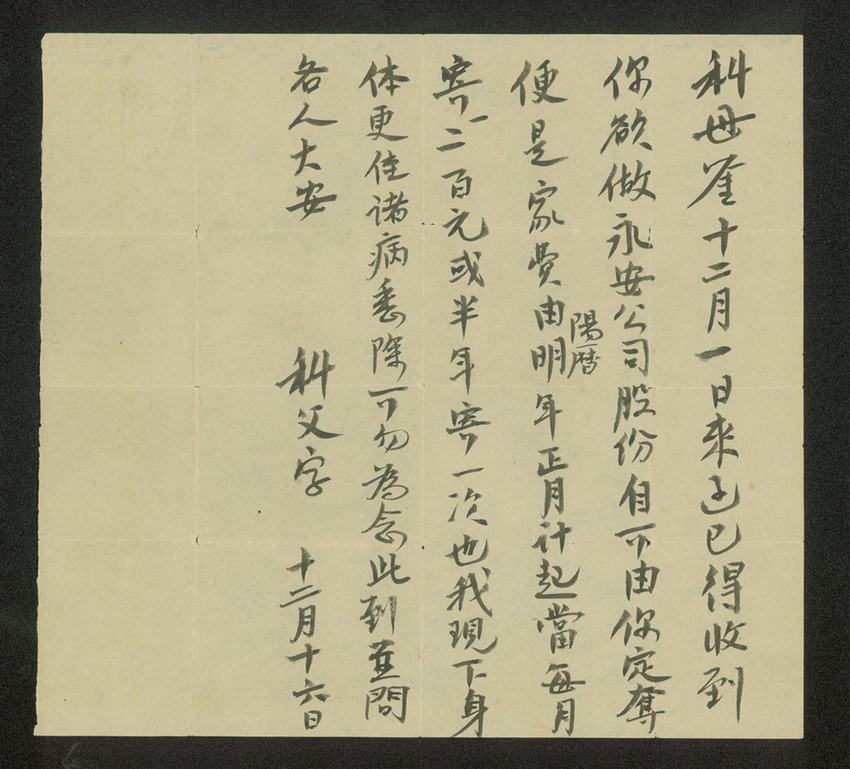 科母鉴十二月一日來函已得收到
你欲做永安公司股份自可由你定奪
便是家費由明年正月計起當每月
陽曆
寄一二百元或半年寄一次也我現下身
体更佳诸病悉除可勿為念此到並問
各人大安
科父字 十二月十六日